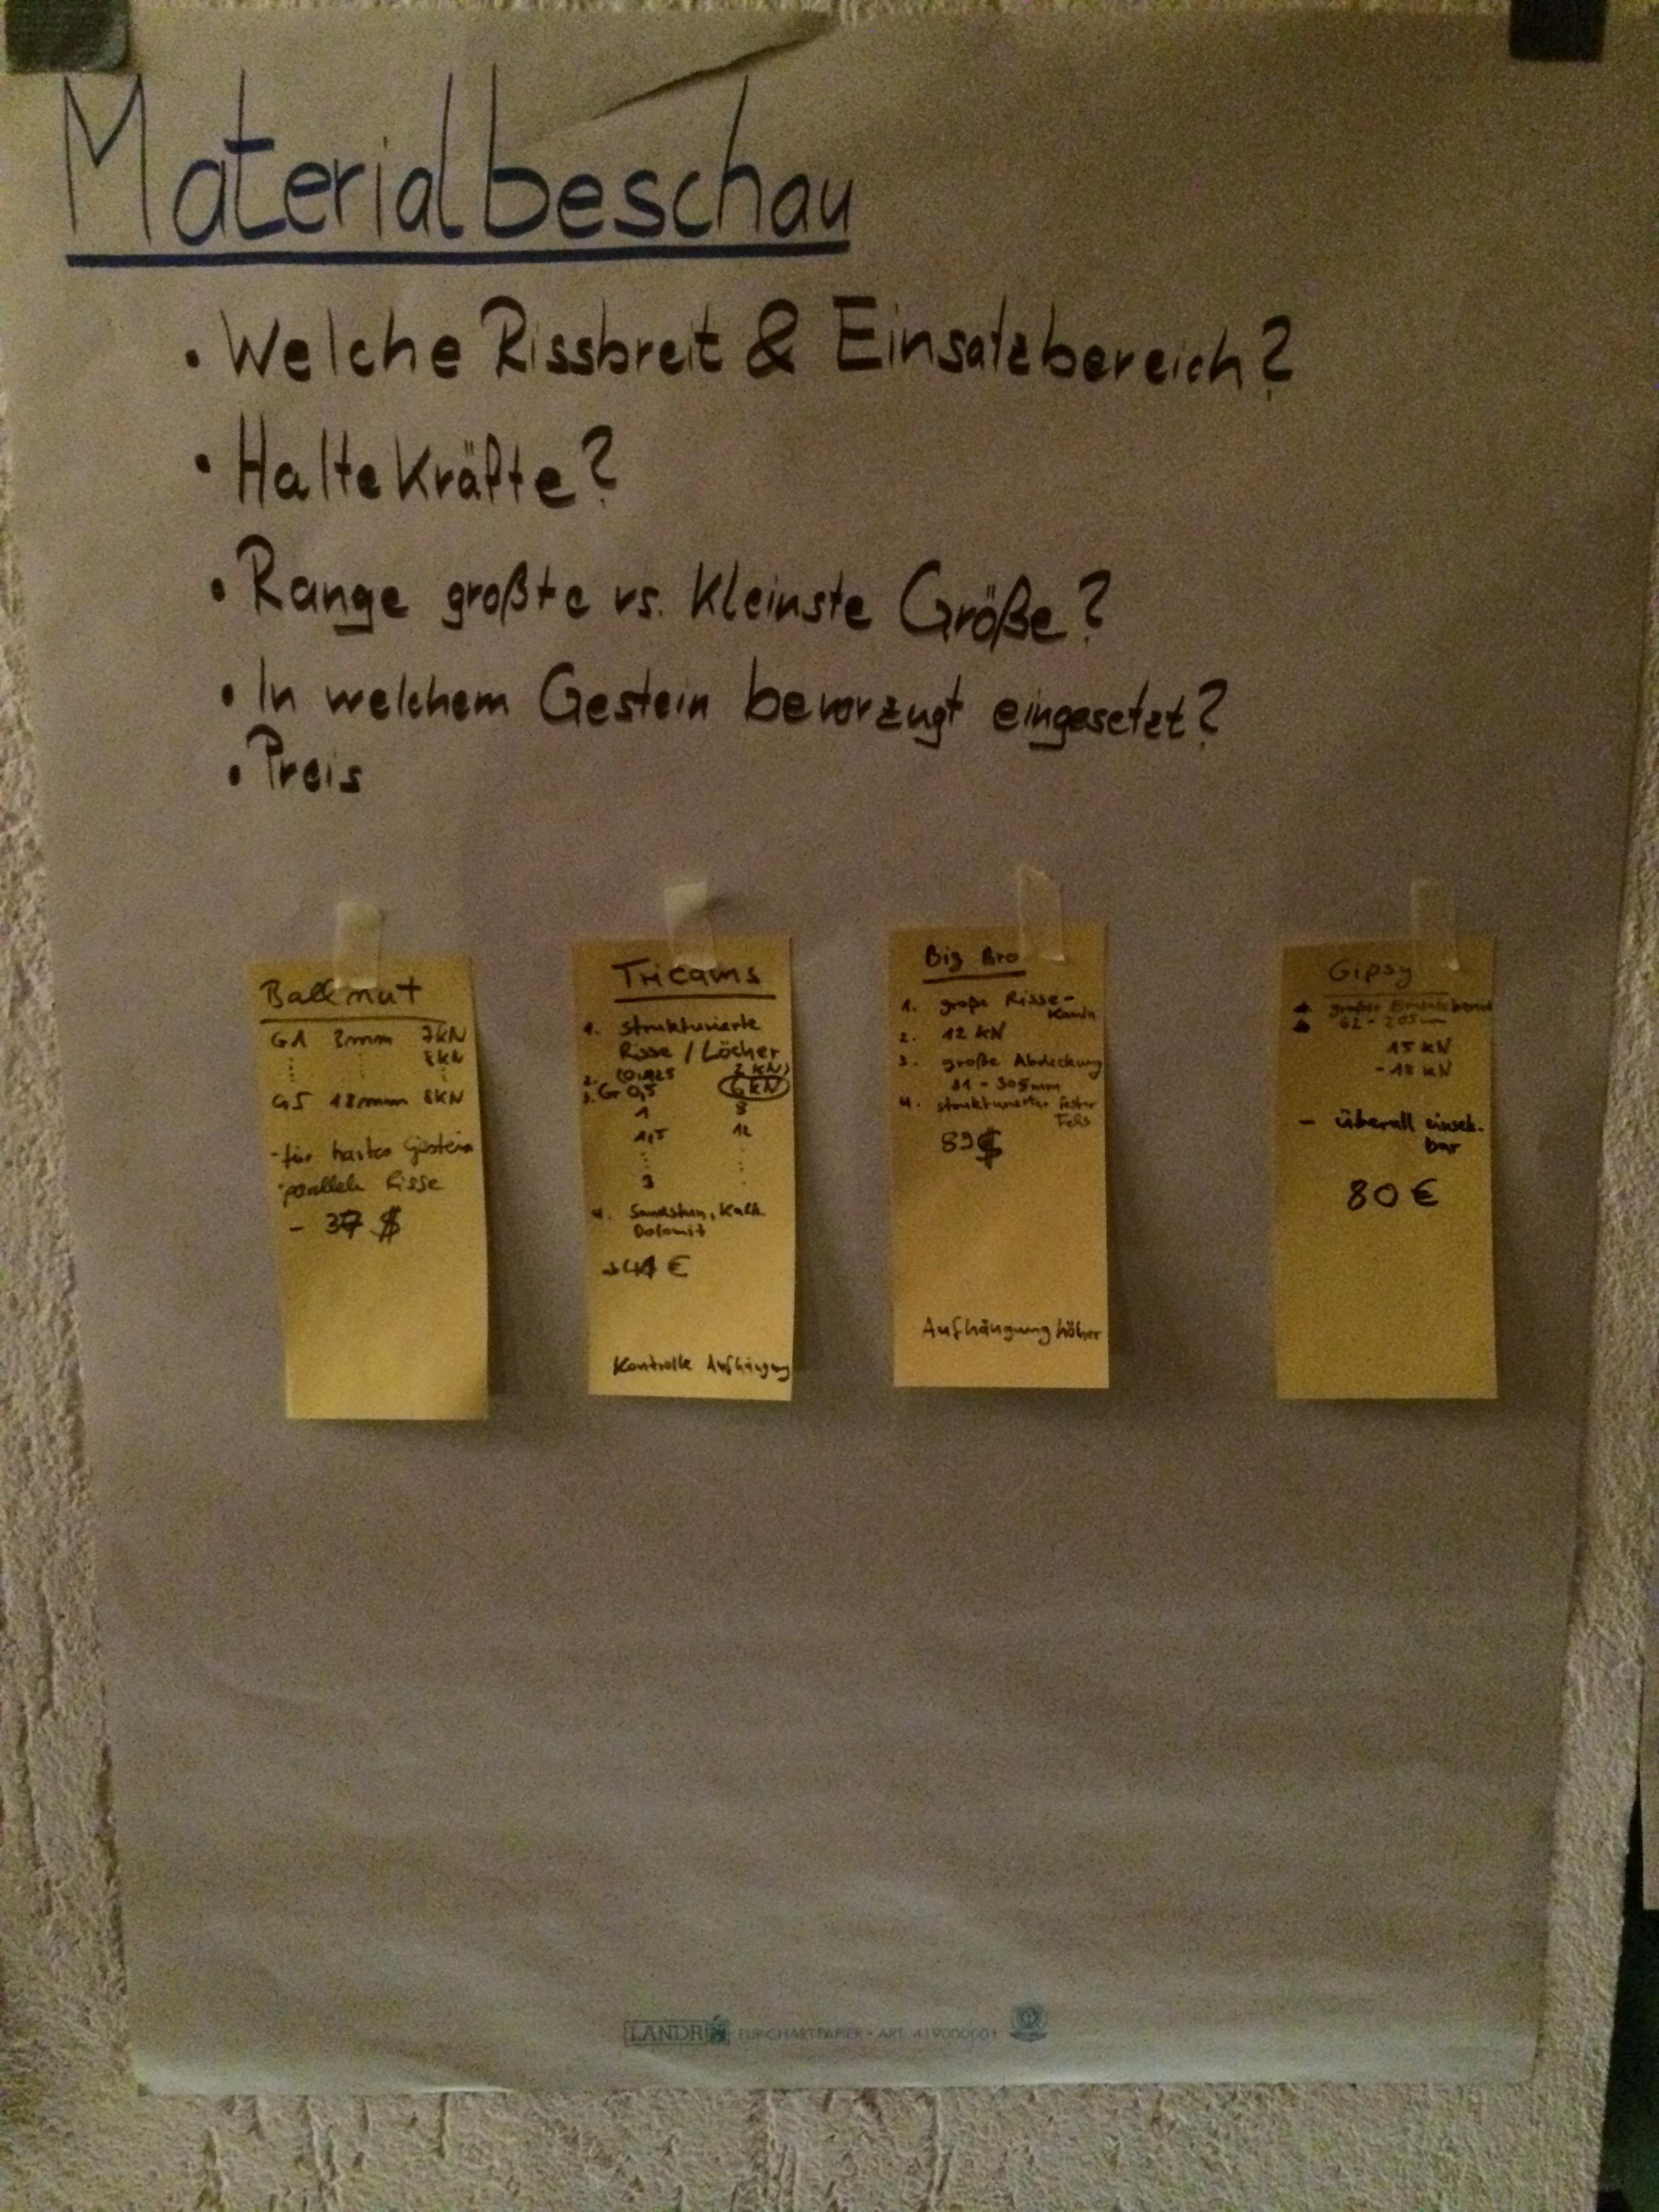 Materialbeschau
• Welche Rissbreit & Einsatzbereich?
• Haltekräfte?
• Range großte vs. Kleinste Größe?
• In welchem Gestein bevorzugt eingesetzt?
• Preis
Ballnut
G1 8mm 7kN
8kN
G5 18mm 8kN
- für hartes Gestein
- parallele Risse
- 37 $
Tricams
1. strukturierte
Risse / Löcher
2. 2 kN)
3. Gr 0,5 6 kN
1 8
1,5 12
3
4. Sandstein, Kalk
Dolomit
41 €
Kontrolle Aufhängung
Big Bro
1. große Risse-
Kamin
2. 12 kN
3. große Abdeckung
81 - 305mm
4. strukturierter fester
Fels
89 $
Aufhängung höher
Gipsy
großer
62 - 205mm
15 kN
- 18 kN
- überall einsetz-
bar
80 €
LANDRÉ FLIP-CHART-PAPIER • ART. 419000001